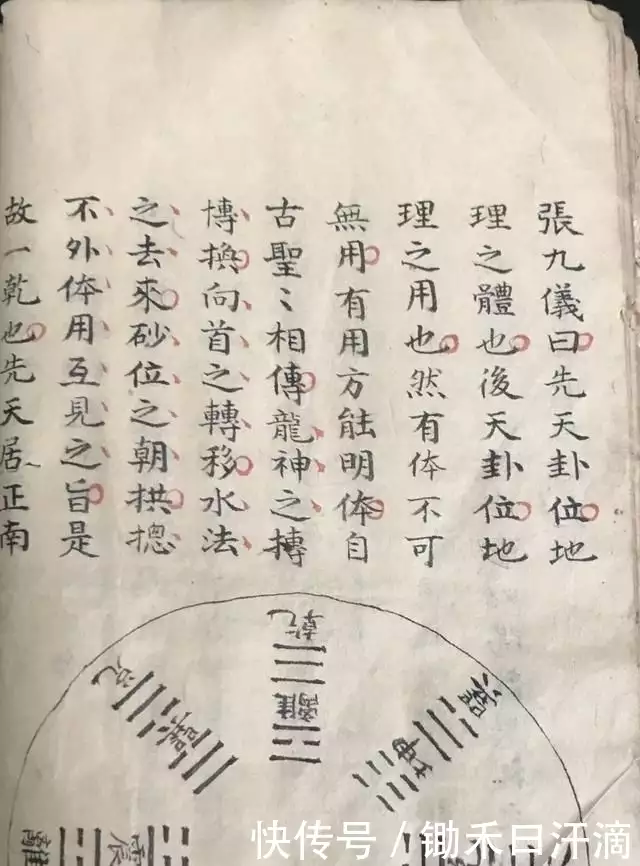 張九儀曰先天卦位地
理之體也後天卦位地
理之用也然有体不可
無用有用方能明体自
古聖〻相傳龍神之摶
博換向首之轉移水法
之去來砂位之朝拱摠
不外体用互見之旨是
故一乾也先天居正南
乾
離
兌
巽
巽
坤
離
震
快传号/锄禾日汗滴